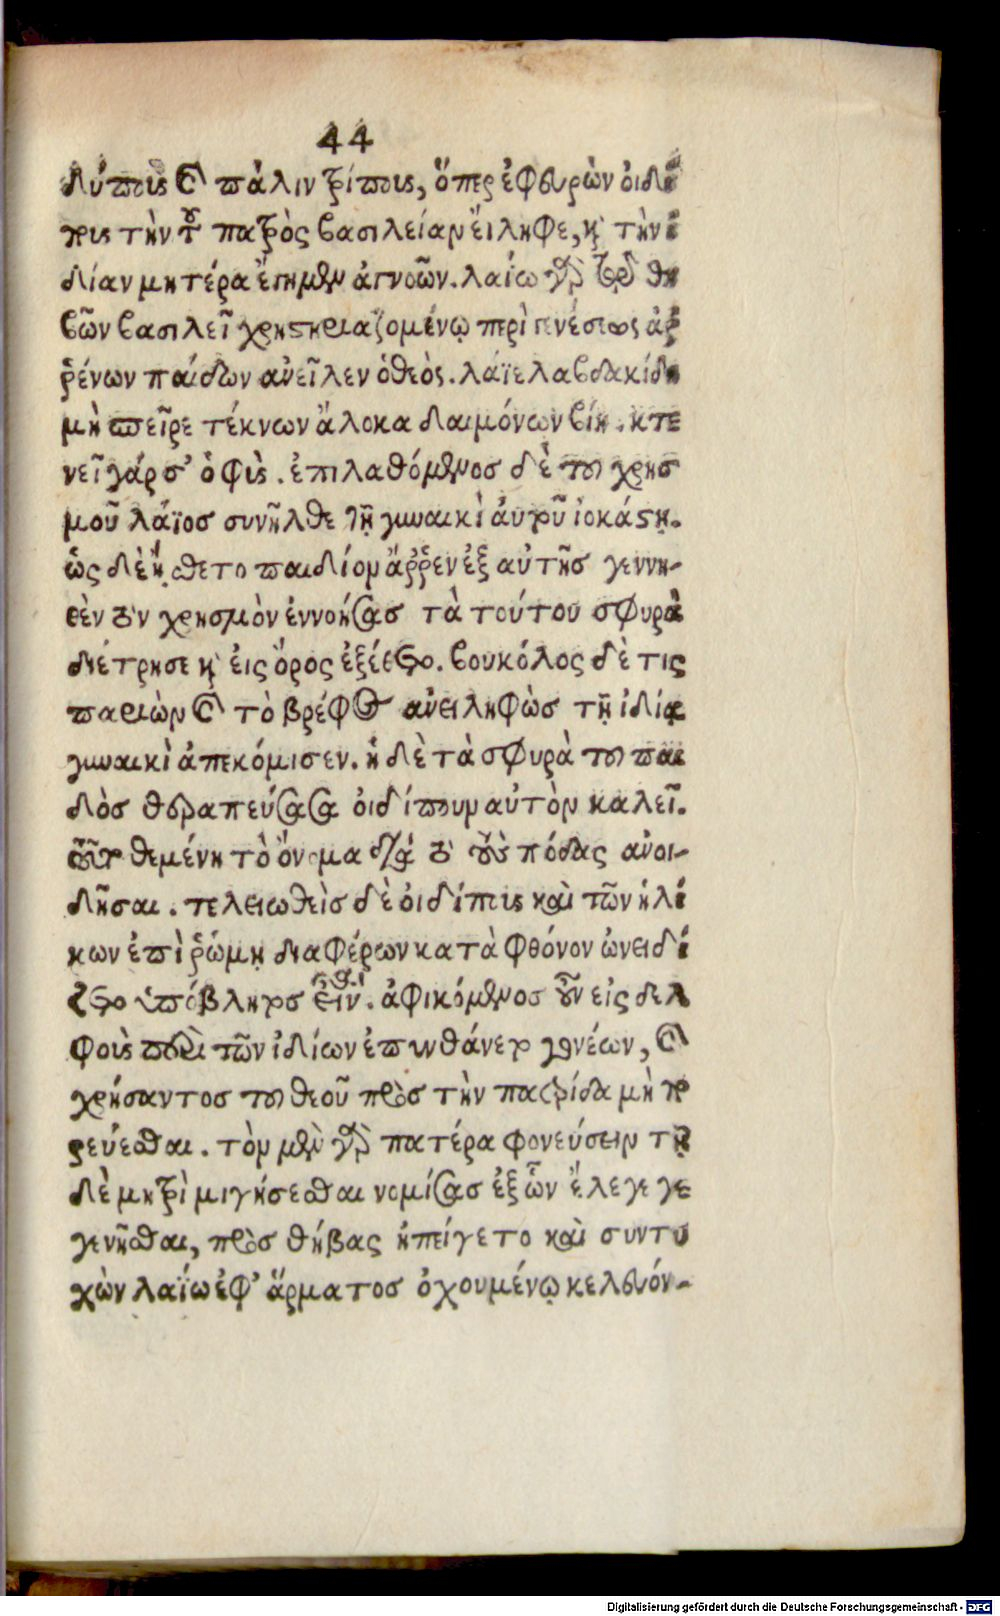 44
δύπους καὶ πάλιν τρίπους, ὅπερ ἐφευρὼν οἰδί
πους τὴν τοῦ πατρὸς βασιλείαν εἴληφε, καὶ τὴν ἰ
δίαν μητέρα ἔγημεν ἀγνοῶν. λαίω γὰρ τῷ θη
βῶν βασιλεῖ χρηστηριαζομένῳ περὶ γενέσεως ἀρ
ῥένων παίδων ἀνεῖλεν ὁ θεὸς. λάϊε λαβδακίδη
μὴ σπεῖρε τέκνων ἄλοκα δαιμόνων βίῃ. κτε
νεῖ γάρ σ’ ὁ φὺς. ἐπιλαθόμενος δὲ του χρησ
μοῦ λάϊος συνῆλθε τῇ γυναικὶ αὐτοῦ ἰοκάστῃ.
ὡς δὲ ᾔσθετο παιδίον ἄῤῥεν ἐξ αὐτῆς γεννη-
θὲν τὸν χρησμὸν ἐννοήσας τὰ τούτου σφυρὰ
διέτρησε καὶ εἰς ὄρος ἐξέθετο. βουκόλος δὲ τις
παριὼν καὶ τὸ βρέφος ἀνειληφὼς τῇ ἰδίᾳ
γυναικὶ ἀπεκόμισεν. ἡ δὲ τὰ σφυρὰ του παι
δὸς θεραπεύσασα οἰδίπουν αὐτὸν καλεῖ.
τοῦτο θεμένη τὸ ὄνομα διά τὸ τοὺς πόδας ἀνοι-
δῆσαι. τελειωθεὶς δὲ οἰδίπους καὶ τῶν ἡλί
κων ἐπὶ ῥώμῃ διαφέρων κατὰ φθόνον ὠνειδί
ζετο ὑπόβλητος εἶναι. ἀφικόμενος οὖν εἰς δελ
φοὺς περὶ τῶν ἰδίων ἐπυνθάνετο γονέων, καὶ
χρήσαντος του θεοῦ πρὸς τὴν πατρίδα μὴ πο
ρεύεσθαι. τὸν μὲν γὰρ πατέρα φονεύσειν τῇ
δὲ μητρὶ μιγήσεσθαι νομίσας ἐξ ὧν ἔλεγε γε
γενῆσθαι, πρὸς θήβας ἠπείγετο καὶ συντυ
χὼν λαΐω ἐφ’ ἅρματος ὀχουμένῳ κελευόν-
Digitalisierung gefördert durch die Deutsche Forschungsgemeinschaft - DFG